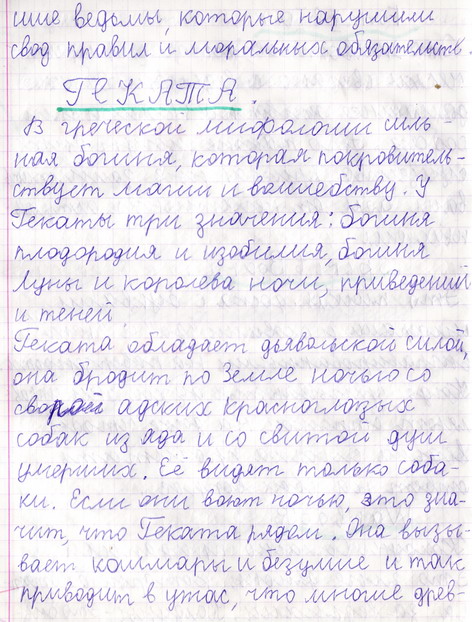 шие ведьмы, которые нарушили
свод правил и моральных обязательств.
ГЕКАТА.
В греческой мифологии силь-
ная богиня, которая покровитель-
ствует магии и волшебству. У
Гекаты три значения: богиня
плодородия и изобилия, богиня
Луны и королева ночи, приведений
и теней
Геката обладает дьявольской силой,
она бродит по Земле ночью со
сворой адских красноглазых
собак из ада и со свитой душ
умерших. Её видят только соба-
ки. Если они воют ночью, это зна-
чит, что Геката рядом. Она вызы-
вает кошмары и безумие и так
приводит в ужас, что многие древ-